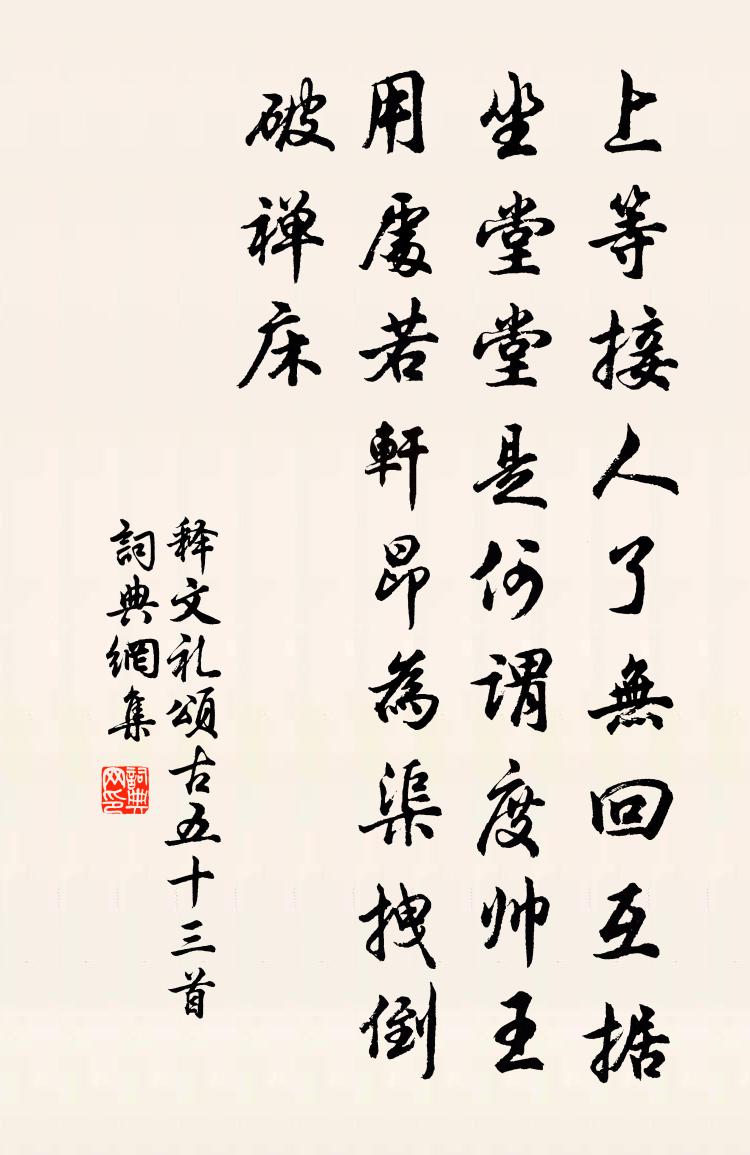 上等接人了無回互据
坐堂堂是何謂度帅王
用處若軒昂為渠拽倒
破禅床
释文礼頌古五十三首
詞典網集
詞典网印